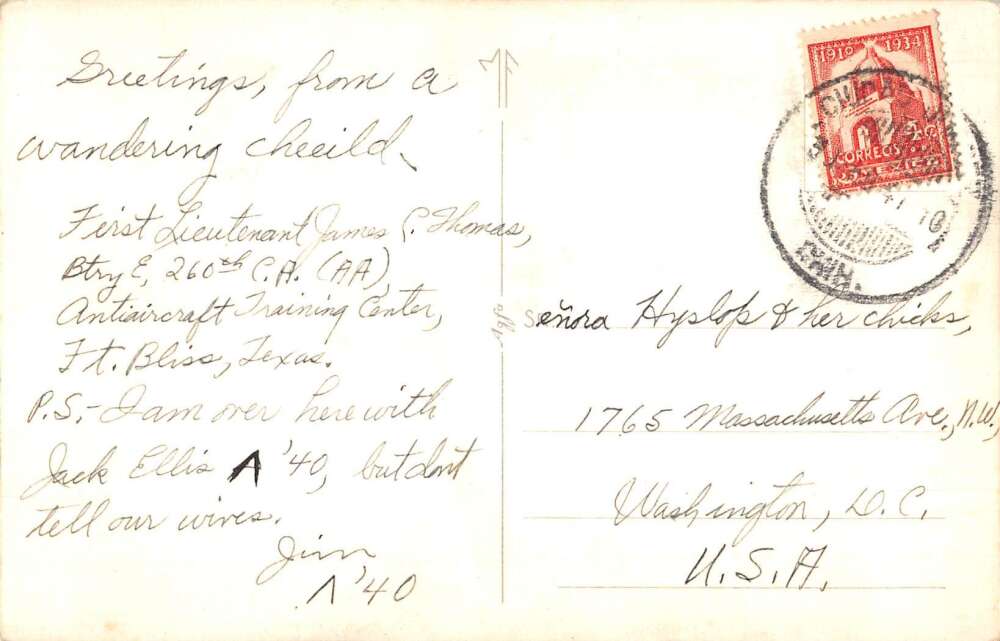 Greetings, from a
wandering cheeild.
First Lieutenant James C. Thomas,
Btry E, 260th C.A. (AA)
Antiaircraft Training Center,
Ft. Bliss, Texas.
P.S.- I am over here with
Jack Ellis Λ '40, but don't
tell our wives.
Jim
Λ '40
1910 1934
CORREOS
MEXICO
CHIH.
10
Señora Hyslop & her chicks,
1765 Massachusetts Ave., N.W.,
Washington, D.C.
U.S.A.